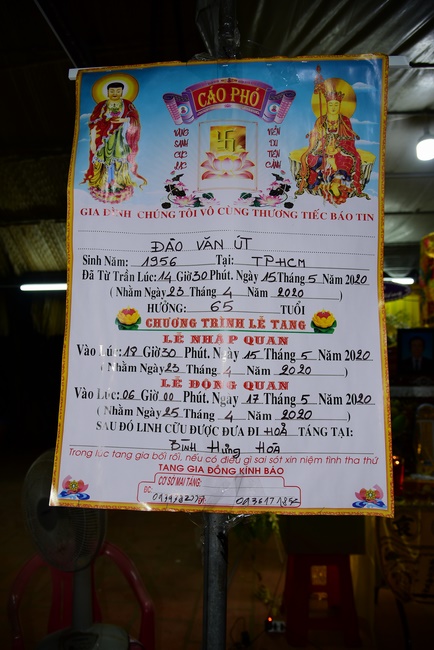 CÁO PHÓ
VÃNG SANH CỰC LẠC
VIÊN DU TIÊN CẢNH
GIA ĐÌNH CHÚNG TÔI VÔ CÙNG THƯƠNG TIẾC BÁO TIN
ĐÀO VĂN ÚT
Sinh Năm: 1956 Tại: TPHCM
Đã Từ Trần Lúc: 14 Giờ 30 Phút. Ngày 15 Tháng 5 Năm 2020
( Nhằm Ngày 23 Tháng 4 Năm 2020 )
HƯỞNG: 65 TUỔI
CHƯƠNG TRÌNH LỄ TANG
LỄ NHẬP QUAN
Vào Lúc: 18 Giờ 30 Phút. Ngày 15 Tháng 5 Năm 2020
( Nhằm Ngày 23 Tháng 4 Năm 2020 )
LỄ ĐỘNG QUAN
Vào Lúc: 06 Giờ 00 Phút. Ngày 17 Tháng 5 Năm 2020
( Nhằm Ngày 25 Tháng 4 Năm 2020 )
SAU ĐÓ LINH CỮU ĐƯỢC ĐƯA ĐI HOẢ TÁNG TẠI:
Bình Hưng Hoà
Trong lúc tang gia bối rối, nếu có điều gì sai sót xin niệm tình tha thứ
TANG GIA ĐỒNG KÍNH BÁO
CƠ SỞ MAI TÁNG:
ĐC: